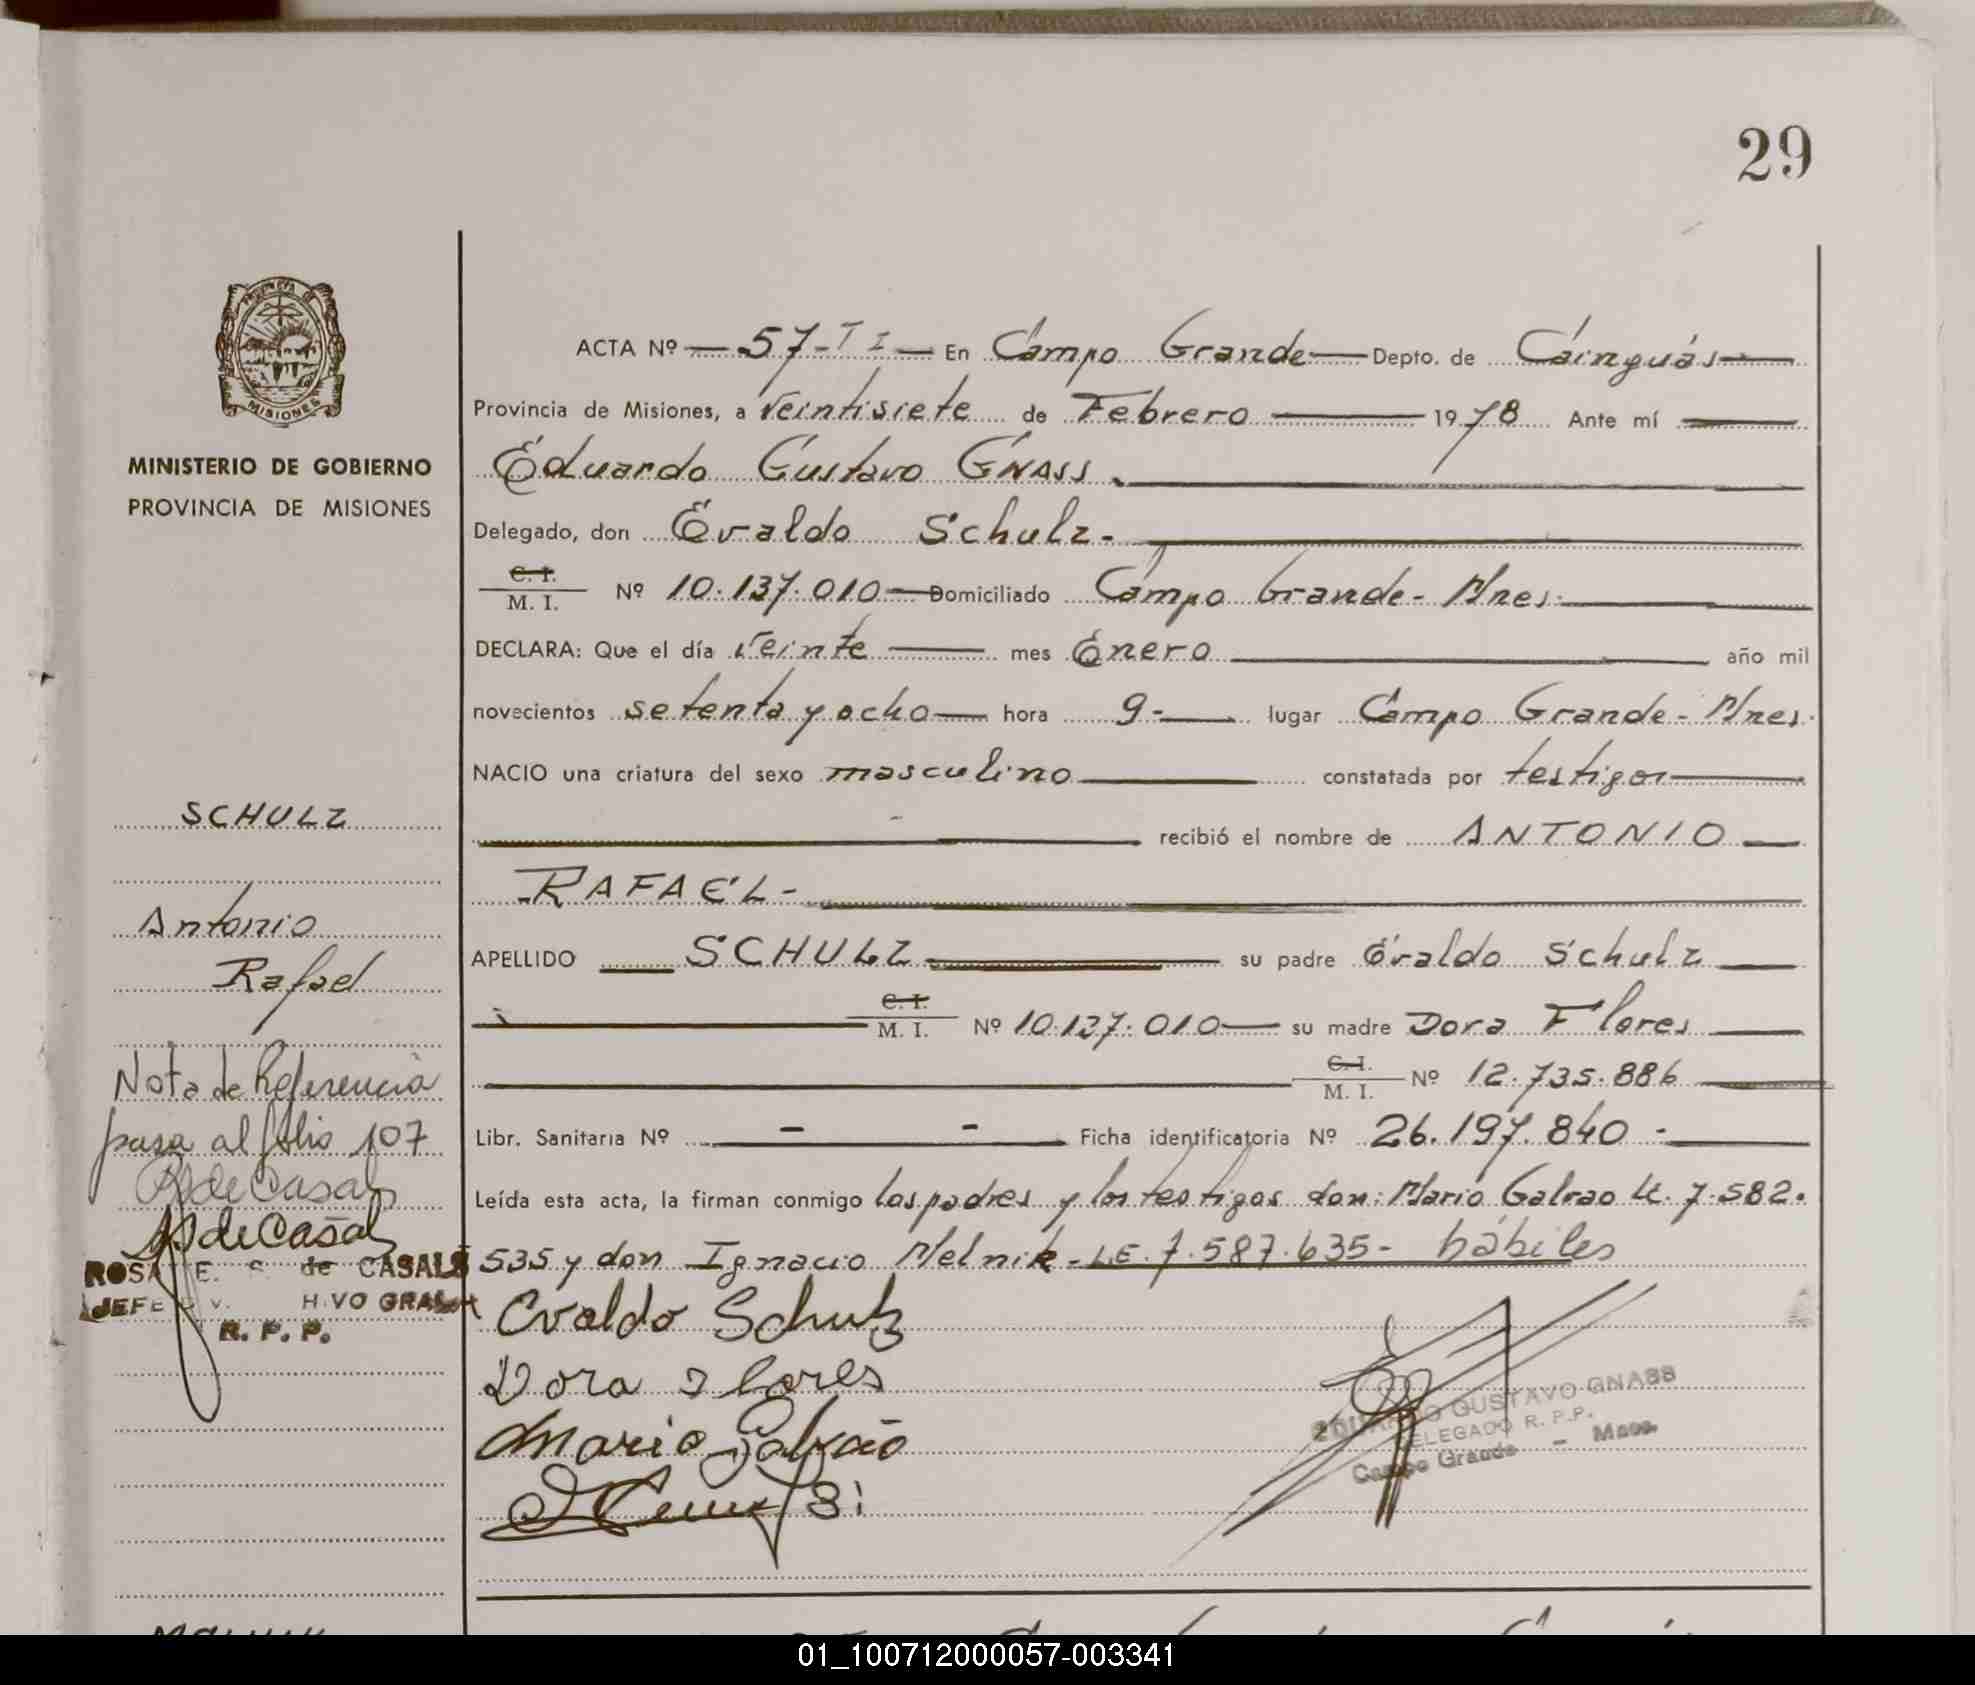 29
PROVINCIA DE
MISIONES
MINISTERIO DE GOBIERNO
PROVINCIA DE MISIONES
ACTA Nº 57-TI En Campo Grande Depto. de Cainguás
Provincia de Misiones, a veintisiete de Febrero 1978 Ante mí
Eduardo Gustavo GNASS.
Delegado, don Evaldo Schulz-
C. I.
M. I. Nº 10.137.010 Domiciliado Campo Grande- Mnes.
DECLARA: Que el día veinte mes Enero año mil
novecientos setenta y ocho hora 9- lugar Campo Grande- Mnes.
NACIO una criatura del sexo masculino constatada por testigos
recibió el nombre de ANTONIO
RAFAEL-
APELLIDO SCHULZ su padre Evaldo Schulz
C. I.
M. I. Nº 10.137.010 su madre Dora Flores
C. I.
M. I. Nº 12.735.886
Libr. Sanitaria Nº - - Ficha identificatoria Nº 26.197.840 -
Leída esta acta, la firman conmigo los padres y los testigos don: Mario Galvao LE. 7.582.
535 y don Ignacio Melnik- LE. 7.587.635- hábiles
Evaldo Schulz
Dora Flores
Mario Galvão
EDUARDO GUSTAVO GNASS
DELEGADO R. P. P.
Campo Grande - Mnes.
SCHULZ
Antonio
Rafael
Nota de Referencia
pasa al folio 107
R de Casals
R de Casals
ROSA E. S. de CASALS
JEFE
R. P. P.
01_100712000057-003341